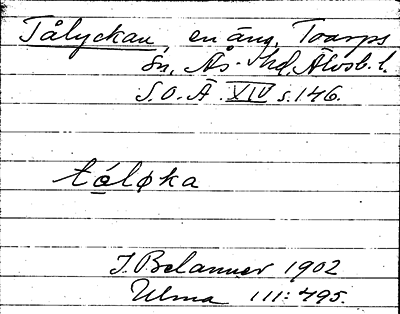 Tålyckan, en äng, Toarps
sn, Ås. hd, Älvsb. l.
S.O.Ä XIV s. 146.
tóløka
J. Belanner 1902
Ulma 111:795.